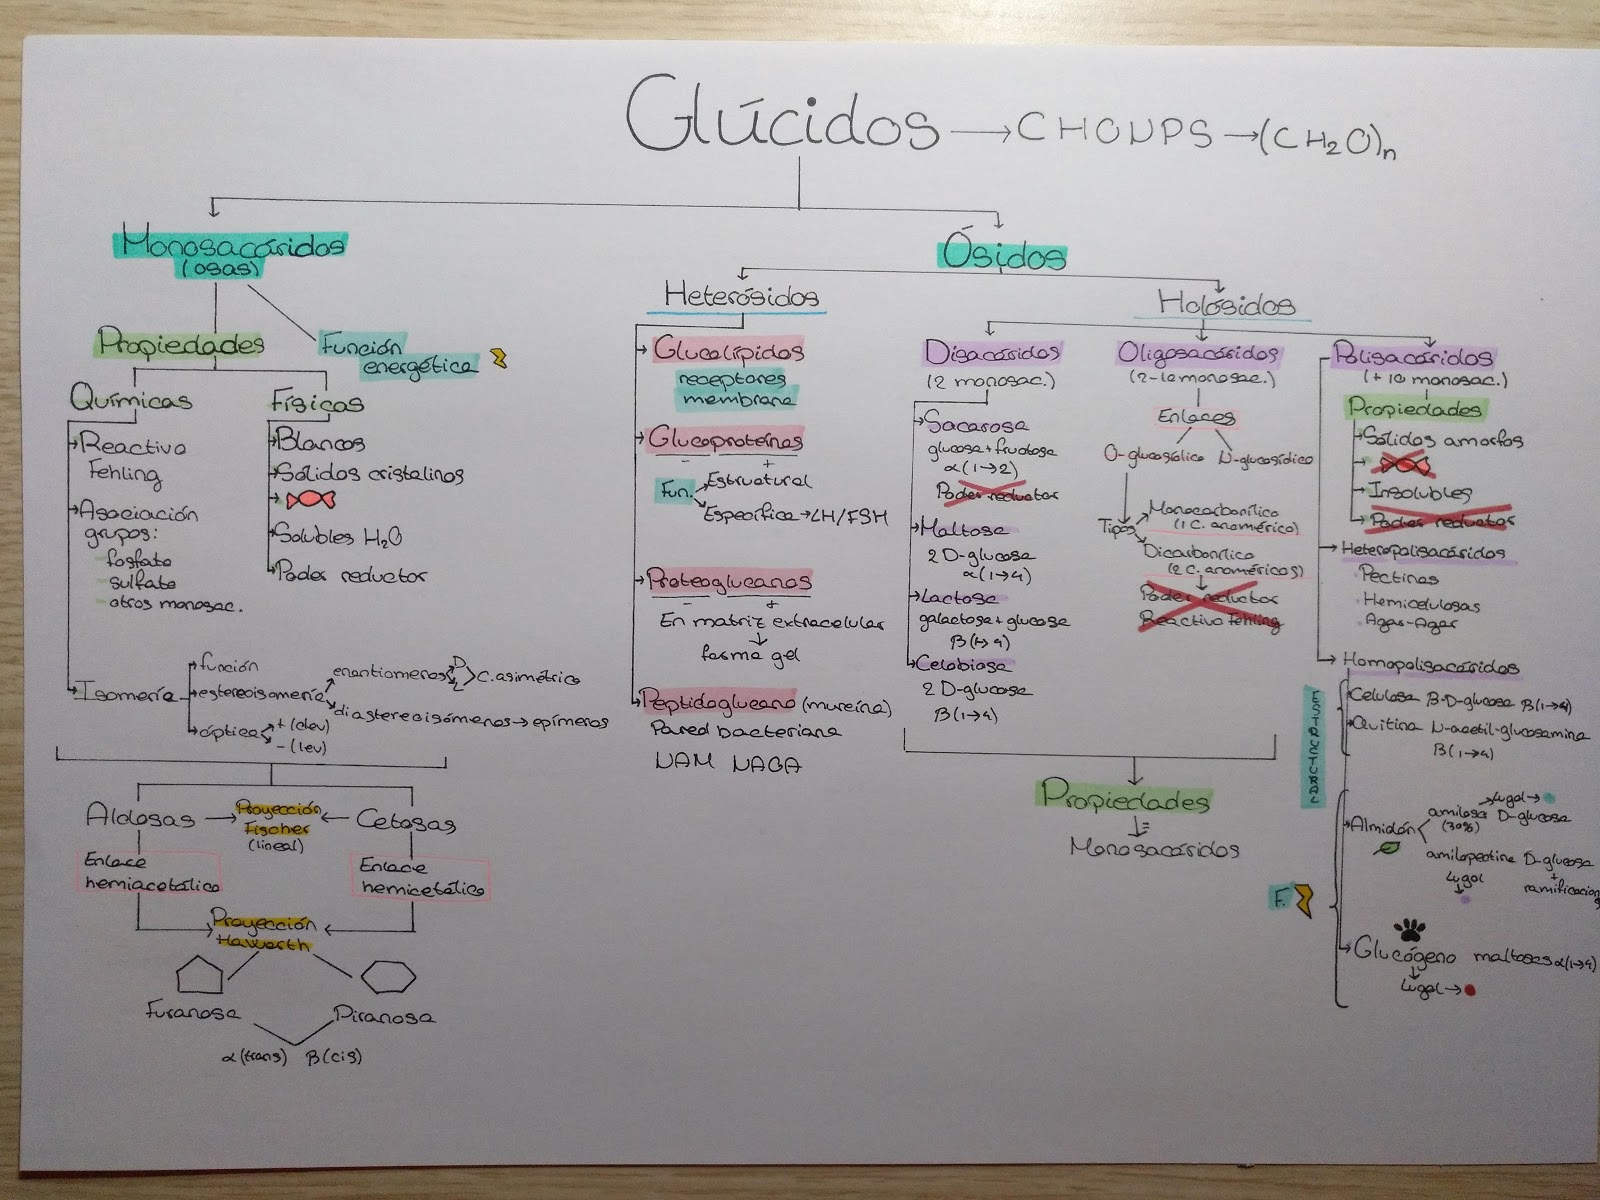 Glúcidos → CHONPS → (CH₂O)n
Monosacáridos
(osas)
Propiedades
Función
energética
Químicas
Reactivo
Fehling
Asociación
grupos:
- fosfato
- sulfato
- otros monosac.
Isomería
función
estereoisomería
enantiomeros
D
L
C. asimétrico
diastereoisómeros → epímeros
óptica
+ (dev)
- (lev)
Físicas
Blancos
Sólidos cristalinos
Solubles H₂O
Poder reductor
Aldosas
Proyección
Fischer
(lineal)
Cetosas
Enlace
hemiacetálico
Enlace
hemicetálico
Proyección
Haworth
Furanosa
Piranosa
α(trans) β(cis)
Ósidos
Heterósidos
Glucolípidos
receptores
membrana
Glucoproteínas
- +
Fun.
Estructural
Específica → LH/FSH
Proteoglucanos
- +
En matriz extracelular
↓
forma gel
Peptidoglucano (mureína)
Pared bacteriana
NAM NAGA
Holósidos
Disacáridos
(2 monosac.)
Sacarosa
glucosa + fructosa
α(1→2)
Poder reductor
Maltosa
2 D-glucosa
α(1→4)
Lactosa
galactosa + glucosa
β(1→4)
Celobiosa
2 D-glucosa
β(1→4)
Oligosacáridos
(2-10 monosac.)
Enlaces
O-glucosídico
N-glucosídico
Tipos
Monocarbonílico
(1 C. anomérico)
Dicarbonílico
(2 C. anoméricos)
Poder reductor
Reactivo Fehling
Propiedades
Monosacáridos
Polisacáridos
(+ 10 monosac.)
Propiedades
Sólidos amorfos
Insolubles
Poder reductor
Heteropolisacáridos
Pectinas
Hemicelulosas
Agar-Agar
Homopolisacáridos
ESTRUCTURAL
Celulosa β-D-glucosa β(1→4)
Quitina N-acetil-glucosamina
β(1→4)
F.
Almidón
Lugol →
amilosa D-glucosa
(30%)
amilopectina D-glucosa
+
ramificaciones
Lugol
Glucógeno maltosas α(1→4)
Lugol →